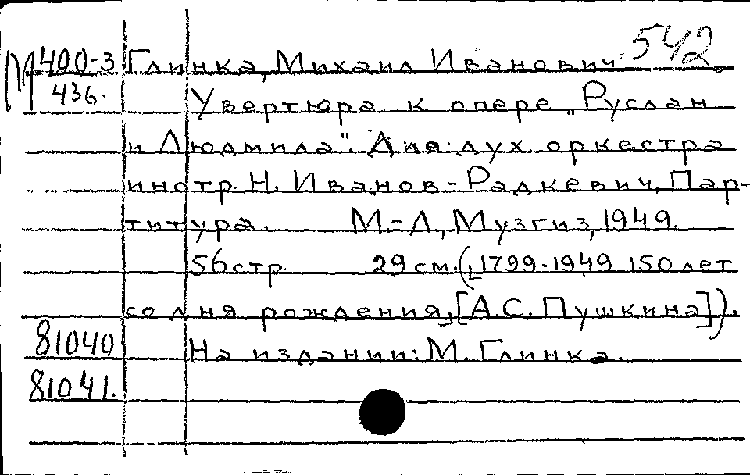 М 400-3 Глинка, Михаил Иванович. 542
436. Увертюра к опере „Руслан
и Людмила". Для дух. оркестра
инстр. Н. Иванов-Радкевич. Пар-
титура. М.-Л., Музгиз, 1949.
56 стр. 29 см. (1799-1949. 150 лет
со дня рождения, [А.С. Пушкина]).
81040 На издании: М. Глинка.
81041.